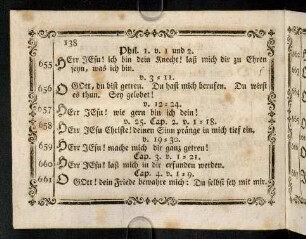 138
Phil. 1. v. 1 und 2.
655 HErr JEsu! ich bin dein Knecht! laß mich dir zu Ehren
seyn, was ich bin.
v. 3=11.
656 O GOtt, du bist getreu. Du hast mich berufen. Du wirst
es thun. Sey gelobet!
v. 12=24.
657 HErr JEsu! wie gern bin ich dein!
v. 25. Cap. 2. v. 1=18.
658 HErr JEsu Christe! deinen Sinn prange in mich tief ein.
v. 19=30.
659 HErr JEsu! mache mich dir ganz getreu!
Cap. 3. v. 1=21.
660 HErr JEsu! laß mich in dir erfunden werden.
Cap. 4. v. 1=9.
661 O GOtt! dein Friede bewahre mich: Du selbst sey mit mir.